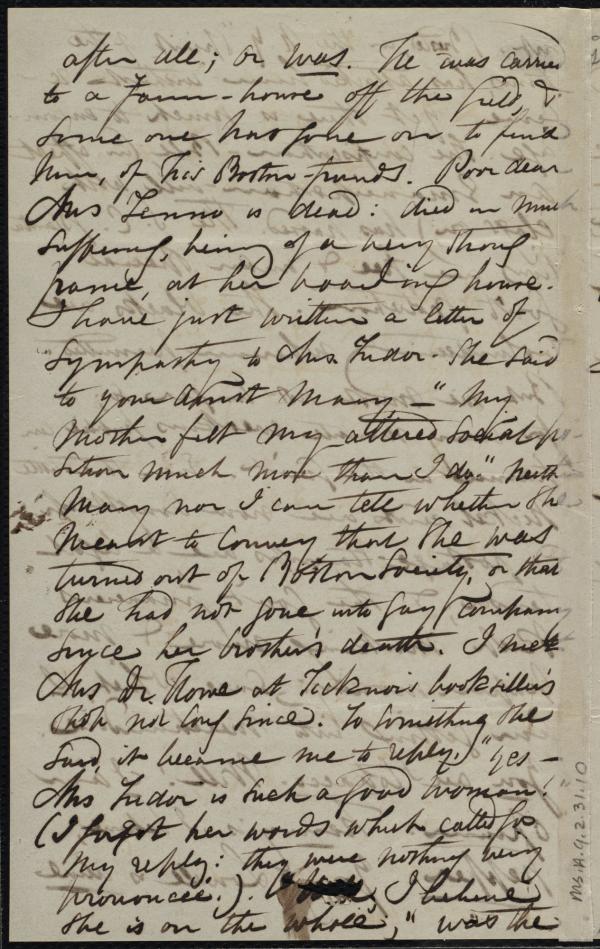 after all; or was. He was carried
to a farm-house off the field, &
some one has gone on to find
him, of his Boston friends. Poor dear
Mrs Fenno is dead: died in much
suffering, being of a very strong
frame, at her boarding house.
I have just written a letter of
sympathy to Mrs. Tudor. She said
to your Aunt Mary — "My
Mother felt my altered social po-
sition much more than I do." Neither
Mary nor I can tell whether she
meant to convey that she was
turned out of Boston Society, or that
she had not gone into gay company
since her brother's death. I met
Mrs Dr. Howe at Ticknor's bookseller's
shop not long since. To something she
said, it became me to reply, "Yes —
Mrs Tudor is such a good woman!"
(I forgot her words which called for
my reply: they were nothing very
prononcée.). " I believe
she is on the whole," was the
Ms. A. 9. 2. 31. 10